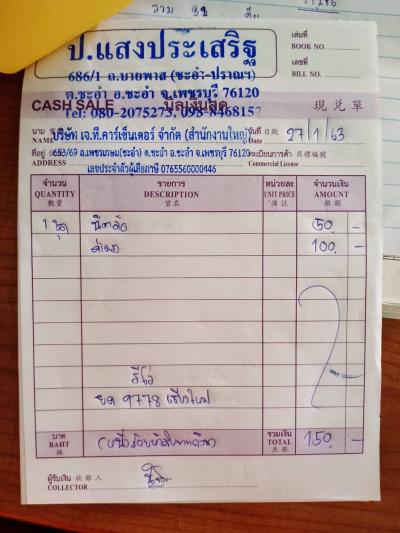 ป.แสงประเสริฐ
686/1 ถ.บายพาส (ชะอำ-ปราณฯ)
ต.ชะอำ อ.ชะอำ จ.เพชรบุรี 76120
โทร: 080-2075273, 098-8468157
เล่มที่
BOOK NO.
เลขที่
BILL NO.
CASH SALE บิลเงินสด 現兌單
นาม
NAME
บริษัท เจ.ที.คาร์เซ็นเตอร์ จำกัด (สำนักงานใหญ่)
วันที่ 日期
Date 27/1/63
ที่อยู่
ADDRESS
653/69 ถ.เพชรเกษม(ชะอำ) ต.ชะอำ อ.ชะอำ จ.เพชรบุรี 76120
ทะเบียนการค้า 商標編號
Commercial License
เลขประจำตัวผู้เสียภาษี 0765560000446
จำนวน รายการ หน่วยละ จำนวนเงิน
QUANTITY DESCRIPTION UNIT PRICE AMOUNT
數量 貨名 備註 銀額
50 -
100 -
รีโว่
9778 เชียงใหม่
บาท
BAHT
(หนึ่งร้อยห้าสิบบาทถ้วน)
รวมเงิน
TOTAL
共銀
150 -
ผู้รับเงิน 收銀人
COLLECTOR